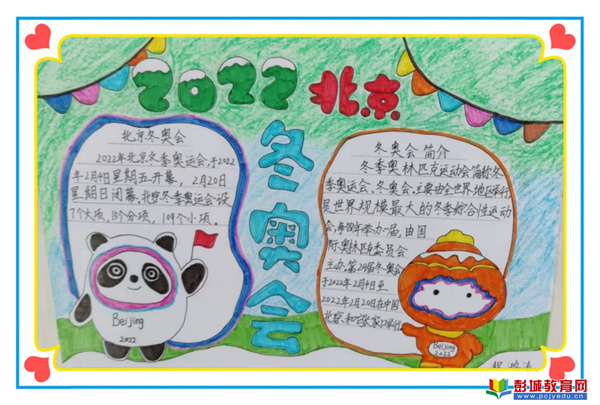 2022 北京
冬奥会
北京冬奥会
2022年北京冬季奥运会,于2022
年2月4日星期五开幕,2月20日
星期日闭幕,北京冬季奥运会设
7个大项,15个分项,109个小项。
冬奥会简介
冬季奥林匹克运动会简称冬
季奥运会、冬奥会,主要由全世界地区举行,
是世界规模最大的冬季综合性运动
会,每四年举办一届,由国
际奥林匹克委员会
主办,第24届冬奥会
于2022年2月4日至
2022年2月20日在中国
北京、和张家口举行
Beijing
2022
Beijing
2022
彭城教育网
www.pcjyedu.cn